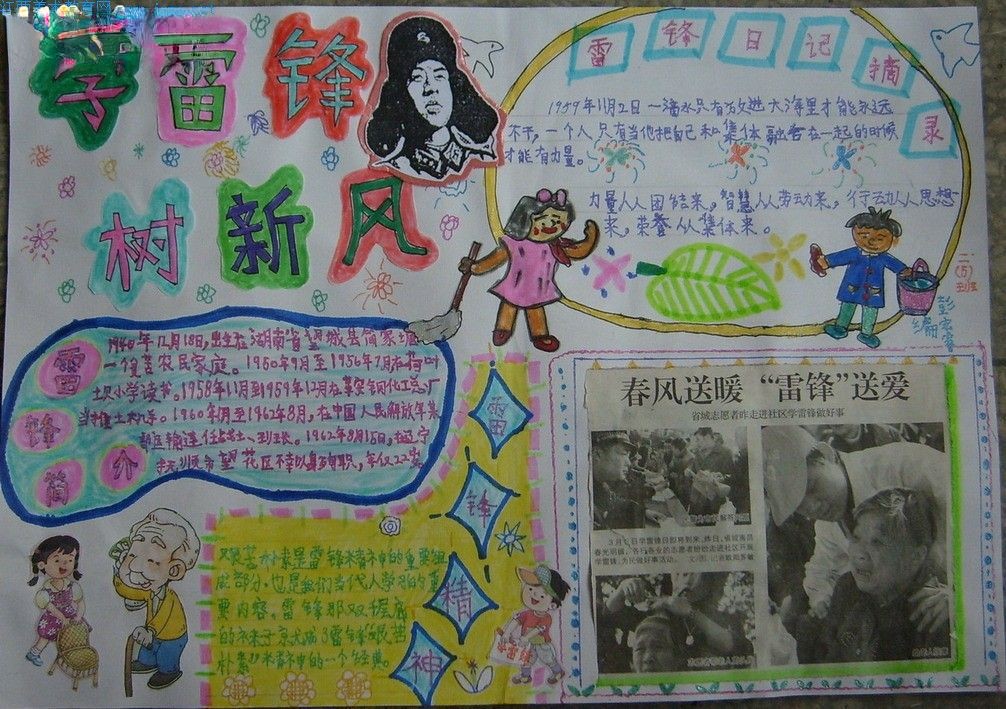 学雷锋
树新风
雷锋日记摘录
1959年11月2日 一滴水只有放进大海里才能永远
不干，一个人只有当他把自己和集体融合在一起的时候
才能有力量。
力量从团结来，智慧从劳动来，行动从思想
来，荣誉从集体来。
二(5)班
编
雷锋简介
1940年12月18日，出生在湖南省望城县简家
一个贫苦农民家庭。1950年9月至1956年7月在荷叶
坝小学读书。1958年11月到1959年12月在鞍钢化工总厂
当推土机手。1960年1月至1962年8月，在中国人民解放军某
部运输连任战士、班长。1962年8月15日，在辽宁
抚顺市望花区不幸以身殉职，年仅22岁
春风送暖 “雷锋”送爱
省城志愿者昨走进社区学雷锋做好事
雷锋精神
艰苦朴素是雷锋精神的重要组
成部分，也是我们当代人学习的重
要内容，雷锋那双
的袜子竟成了雷锋艰苦
朴素精神中的一个经典。
3月5日学雷锋日即将到来，昨日，
春光明媚，各行各业的志愿者纷纷走进社区开展
学雷锋、为民做好事活动。
学雷锋